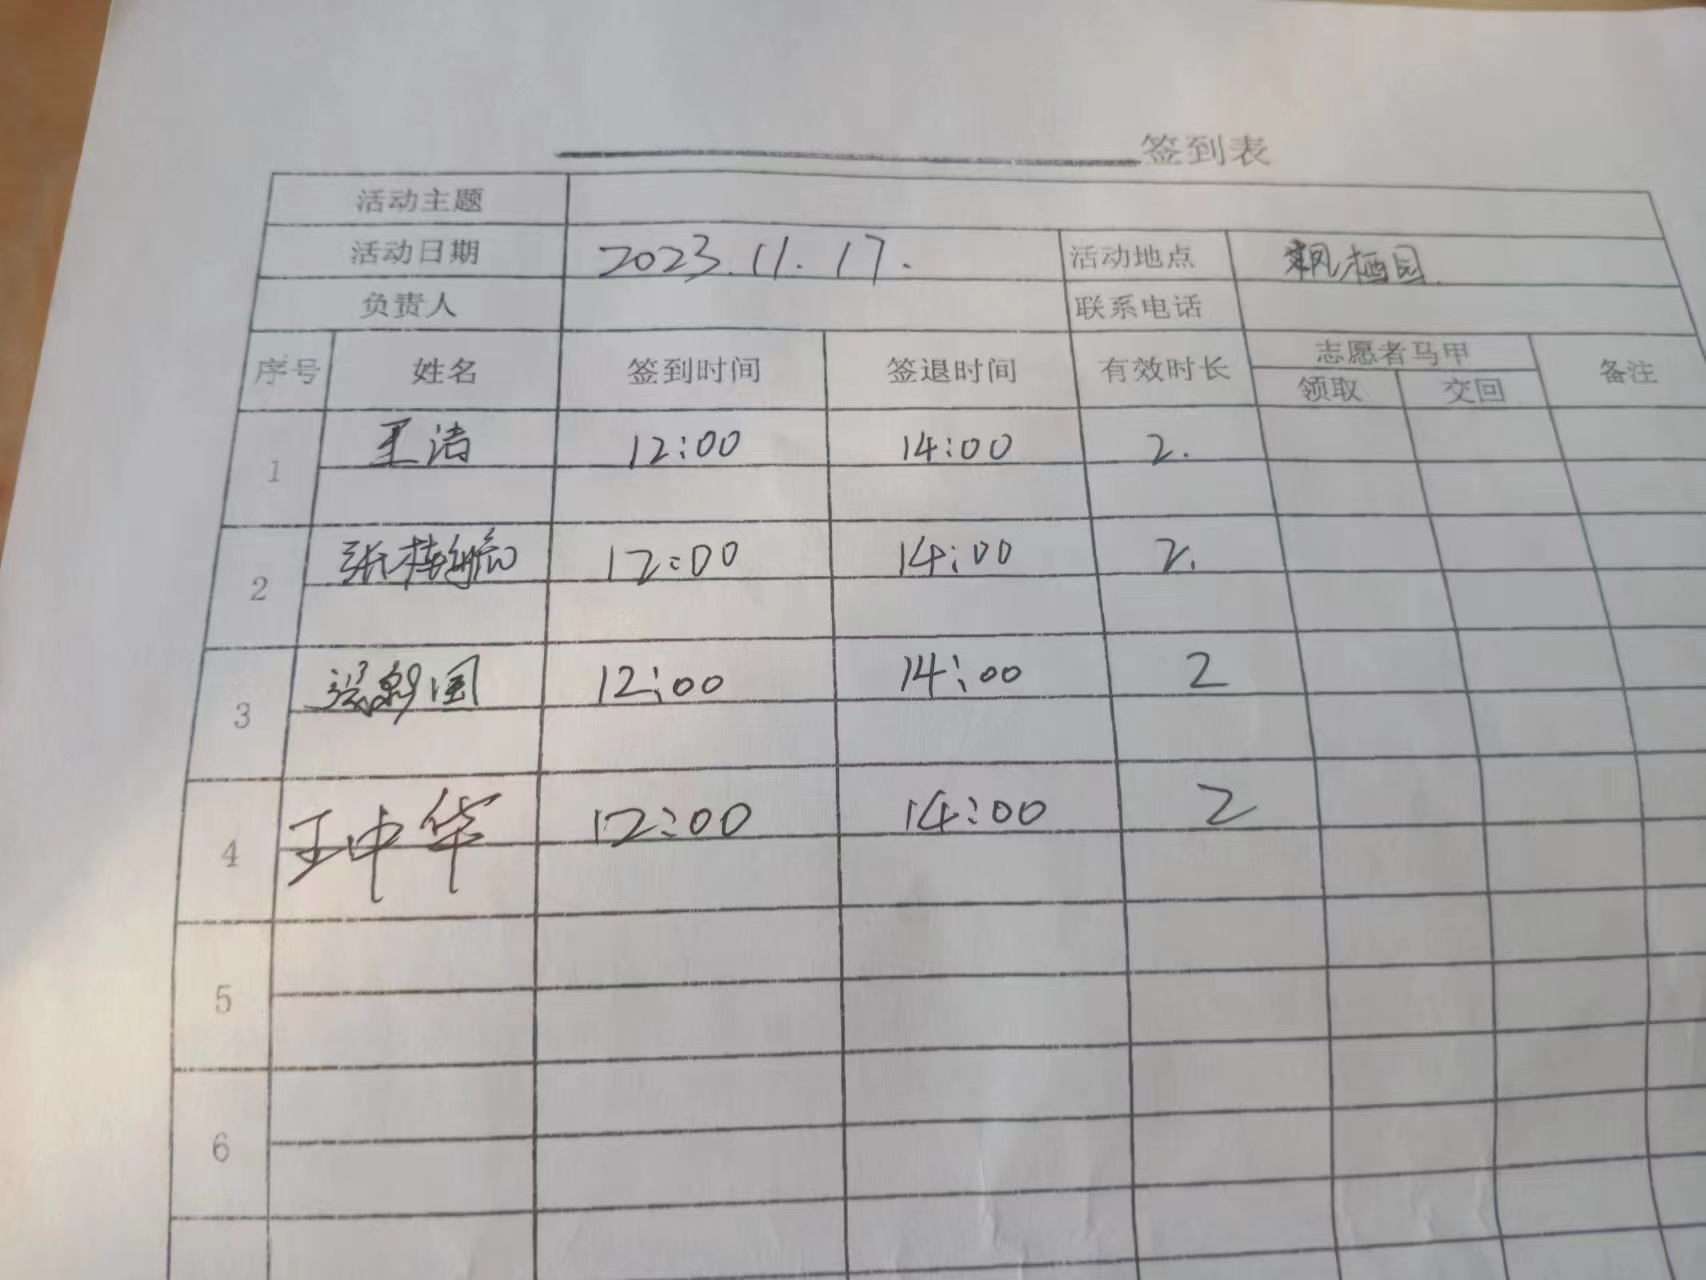 签到表
活动主题
活动日期 2023.11.17. 活动地点 栖园
负责人 联系电话
序号 姓名 签到时间 签退时间 有效时长 志愿者马甲 备注
领取 交回
1 王洁 12:00 14:00 2.
2 张桂 12:00 14:00 2.
3 国 12:00 14:00 2
4 王中华 12:00 14:00 2
5
6